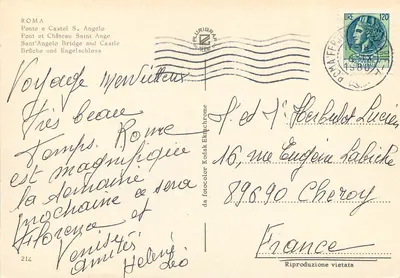 ROMA
Ponte e Castel S. Angelo
Pont et Château Saint Ange
Sant'Angelo Bridge and Castle
Brücke und Engelschloss
Voyage merveilleux
Très beau
temps. Rome
est magnifique
la semaine
prochaine ce sera
Florence et
Venise
Amitiés
Hélène
Léo
214
da fotocolor Kodak Ektachrome
120
ROMA FERR
S. et Herbulot Lucien
16, rue Eugène Labiche
89690 Cheroy
France
Riproduzione vietata